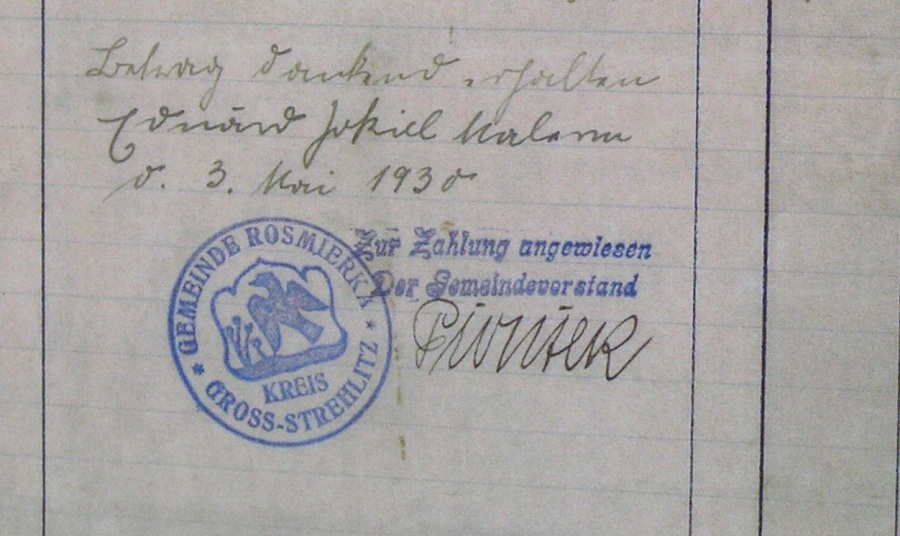 Betrag dankend erhalten
Eduard Jokiel
d. 3. Mai 1930
GEMEINDE ROSMIERKA
KREIS
GROSS-STREHLITZ
Zur Zahlung angewiesen
Der Gemeindevorstand